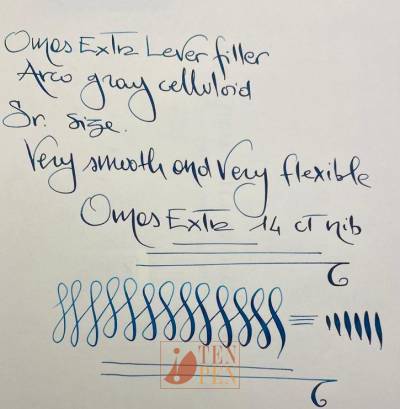 Omas Extra Lever filler
Arco gray celluloid
Sr. size.
Very smooth and very flexible
Omas Extra 14 ct nib
TEN
PEN